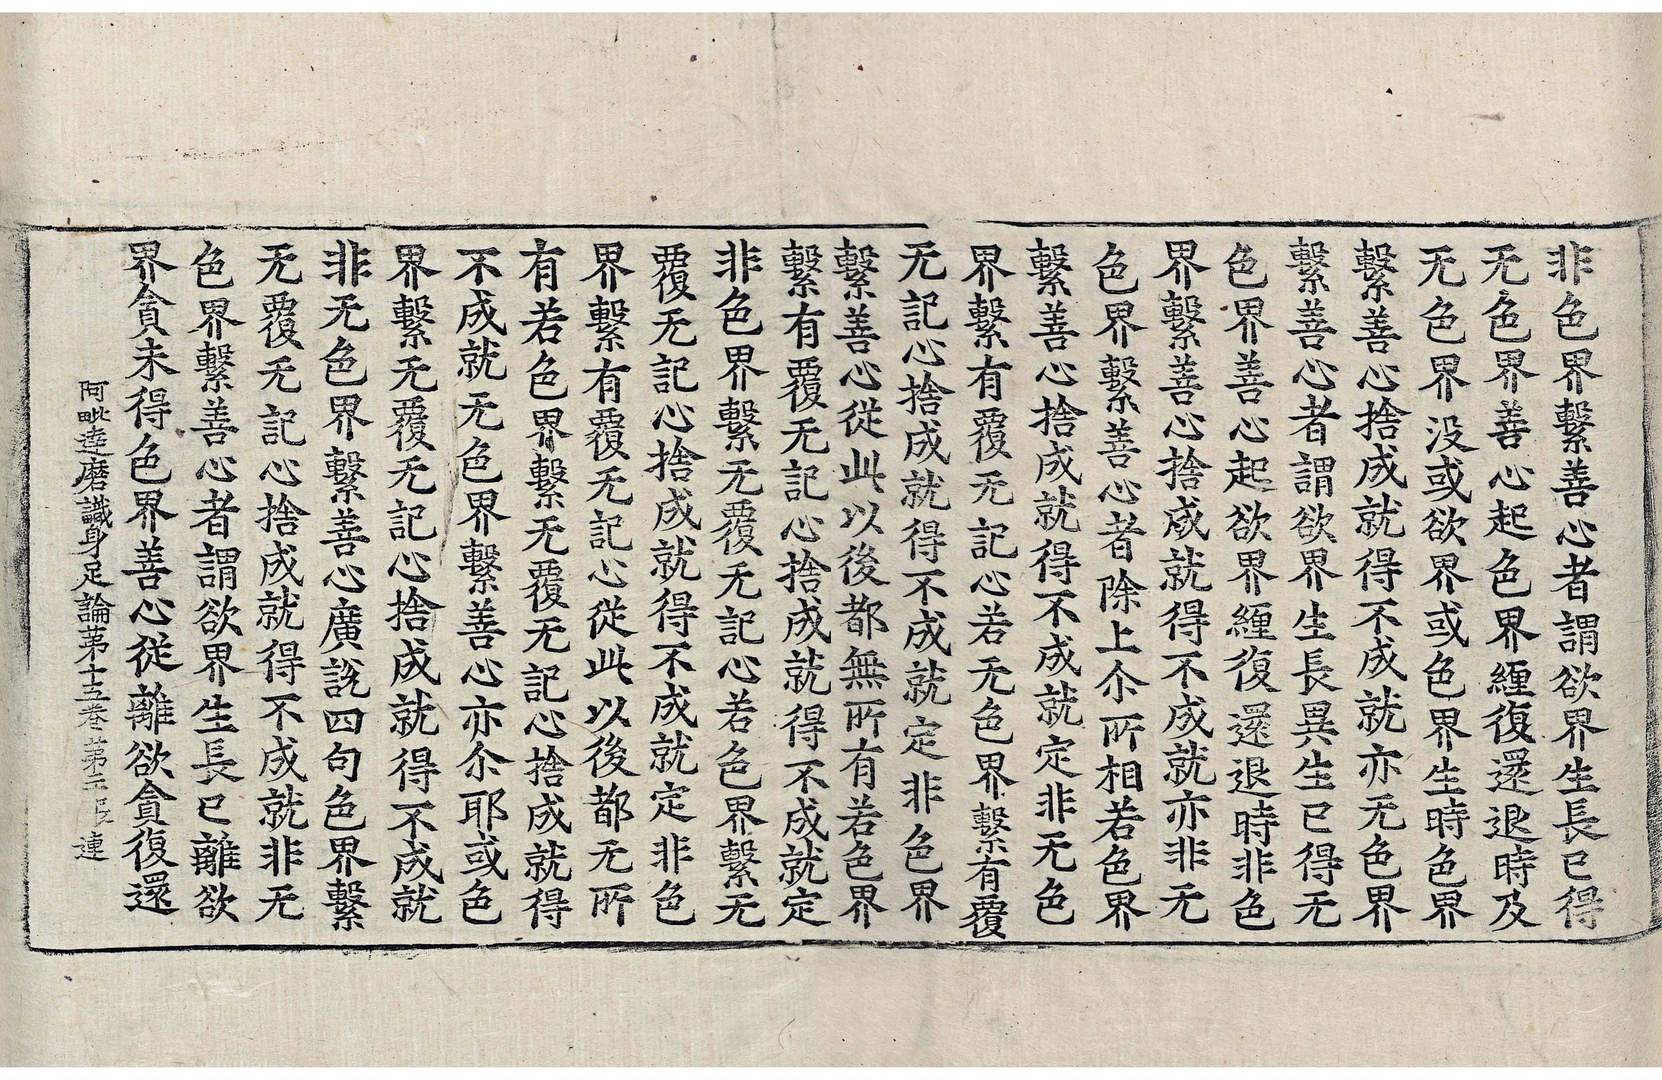 非色界繫善心者謂欲界生長已得
无色界善心起色界纏復還退時及
无色界没或欲界或色界生時色界
繫善心捨成就得不成就亦无色界
繫善心者謂欲界生長異生已得无
色界善心起欲界纏復還退時非色
界繫善心捨成就得不成就亦非无
色界繫善心者除上尒所相若色界
繫善心捨成就得不成就定非无色
界繫有覆无記心若无色界繫有覆
无記心捨成就得不成就定非色界
繫善心從此以後都無所有若色界
繫有覆无記心捨成就得不成就定
非色界繫无覆无記心若色界繫无
覆无記心捨成就得不成就定非色
界繫有覆无記心從此以後都无所
有若色界繫无覆无記心捨成就得
不成就无色界繫善心亦尒耶或色
界繫无覆无記心捨成就得不成就
非无色界繫善心廣說四句色界繫
无覆无記心捨成就得不成就非无
色界繫善心者謂欲界生長已離欲
界貪未得色界善心從離欲貪復還
阿毗達磨識身足論苐十五卷苐 張 連